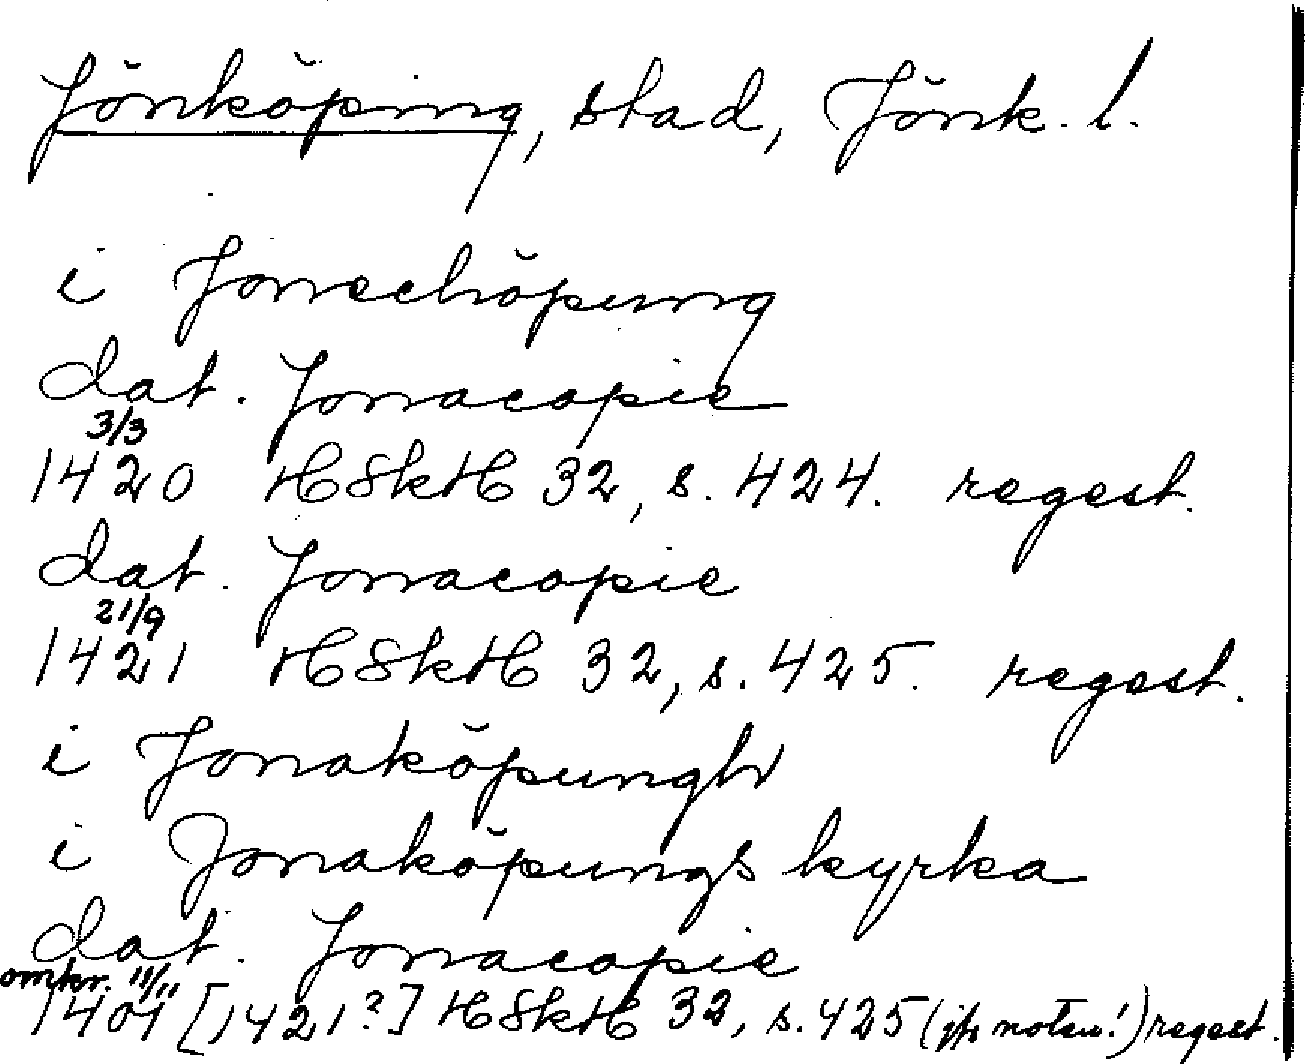 Jönköping, stad, Jönk. l.
i Jonechöpung
dat. Jonacopie
3/3
1420 HSkH 32, s. 424. regest.
dat. Jonacopie
21/9
1421 HSkH 32, s. 425. regest.
i Jonaköpungh
i Jonaköpungs kyrka
dat. Jonacopie
omkr. 11/11
1401 [1421?] HSkH 32, s. 425 (jfr noten!) regest.